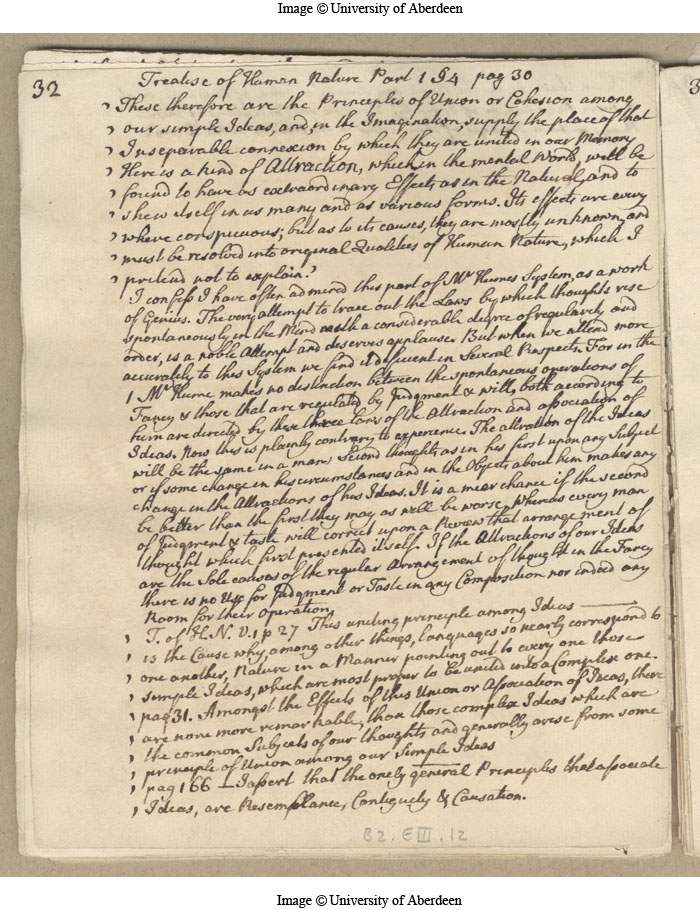 Image © University of Aberdeen
32
Treatise of Human Nature Part 1 § 4 pag 30
, These therefore are the Principles of Union or Cohesion among
, our simple Ideas, and, in the Imagination, supply the place of that
, Inseparable connexion by which they are united in our Memory
, Here is a kind of Attraction, which in the mental World, will be
, found to have as extraordinary Effects as in the Natural, and to
, shew itself in as many and as various forms. Its effects are every
, where conspicuous; but as to its causes, they are mostly unknown, and
, must be resolved into original Qualities of Human Nature, which I
, pretend not to explain.'
I confess I have often admired this part of Mr Humes System, as a work
of Genius. The very attempt to trace out the Laws by which thoughts rise
spontaneously in the Mind with a considerable degree of regularity and
order, is a noble Attempt and deserves applause. But when we attend more
accurately to this System we find it deficient in Several Respects. For in the
1 Mr Hume makes no distinction between the spontaneous operations of
Fancy & those that are regulated by Judgment & will, both according to
him are directed by these three laws of the Attraction and association of
Ideas. Now this is plainly contrary to experience. The attraction of the Ideas
will be the same in a mans Second thoughts as in his first upon any Subject
or if some change in his circumstances and in the Objects about him makes any
change in the Attractions of his Ideas. It is a meer chance if the second
be better than the first they may as well be worse, whereas every man
of Judgment & taste will correct upon a Review that arrangement of
thought which first presented itself. If the Attractions of our Ideas
are the Sole causes of the regular Arrangement of thought in the Fancy
there is no Use for Judgment or Taste in any Composition nor indeed any
Room for their Operation,
, T. of H. N. V. 1 p 27 This uniting principle among Ideas ——
, is the Cause why, among other things, languages so nearly correspond to
, one another, Nature in a Manner pointing out to every one those
, simple Ideas, which are most proper to be united into a Complex one.
, pag 31. Amongst the Effects of this Union or Association of Ideas, there
, are none more remarkable, than those complex Ideas which are
, the common Subjects of our thoughts and generally arise from some
, principle of Union among our Simple Ideas
, pag 166 — I assert that the onely general Principles that associate
, Ideas, are Resemblance, Contiguity & Causation.
B2. E III. 12
Image © University of Aberdeen